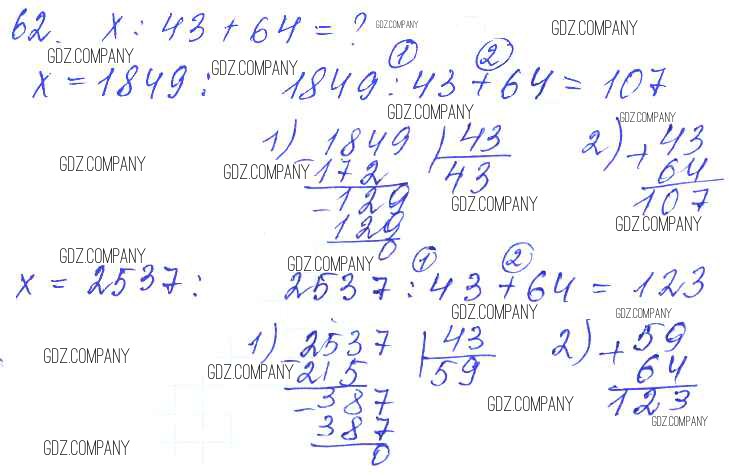 62. x : 43 + 64 = ? GDZ.COMPANY GDZ.COMPANY
GDZ.COMPANY GDZ.COMPANY ① ②
x = 1849 : 1849 : 43 + 64 = 107
GDZ.COMPANY GDZ.COMPANY
1) 1849 | 43 2) + 43
GDZ.COMPANY GDZ.COMPANY - 172 43 64
- 129 GDZ.COMPANY 107
129 GDZ.COMPANY
0
GDZ.COMPANY GDZ.COMPANY ① ②
x = 2537 : 2537 : 43 + 64 = 123
GDZ.COMPANY GDZ.COMPANY
1) 2537 | 43 2) + 59
GDZ.COMPANY GDZ.COMPANY - 215 59 64
- 387 GDZ.COMPANY 123
387 GDZ.COMPANY
GDZ.COMPANY 0